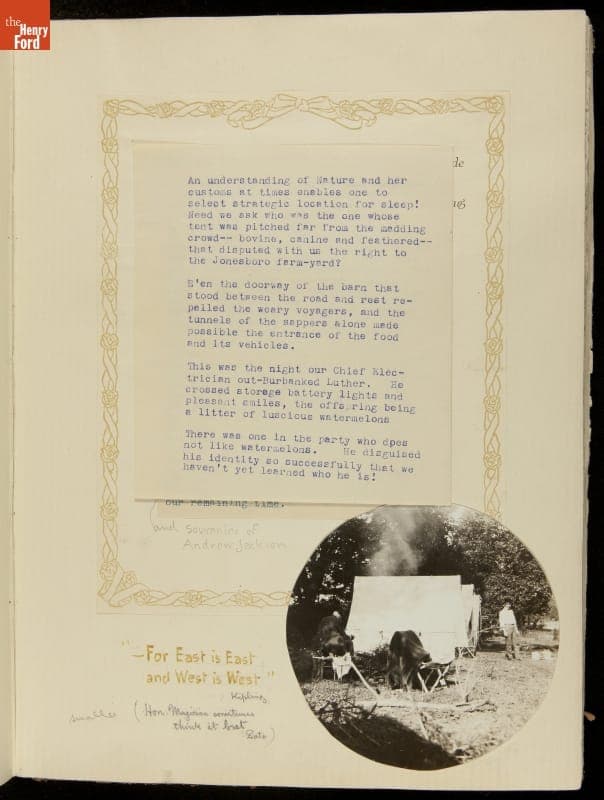 the
Henry
Ford
de
An understanding of Nature and her
customs at times enables one to
select strategic location for sleep!
Need we ask who was the one whose
tent was pitched far from the madding
crowd-- bovine, canine and feathered--
that disputed with us the right to
the Jonesboro farm-yard?
E'en the doorway of the barn that
stood between the road and rest re-
pelled the weary voyagers, and the
tunnels of the sappers alone made
possible the entrance of the food
and its vehicles.
This was the night our Chief Elec-
trician out-Burbanked Luther. He
crossed storage battery lights and
pleasant smiles, the offspring being
a litter of luscious watermelons
There was one in the party who does
not like watermelons. He disguised
his identity so successfully that we
haven't yet learned who he is!
our remaining time.
(and souvenirs of
Andrew Jackson
"—For East is East
and West is West"
Kipling
smaller (Hon. Magician sometimes
think it best
)